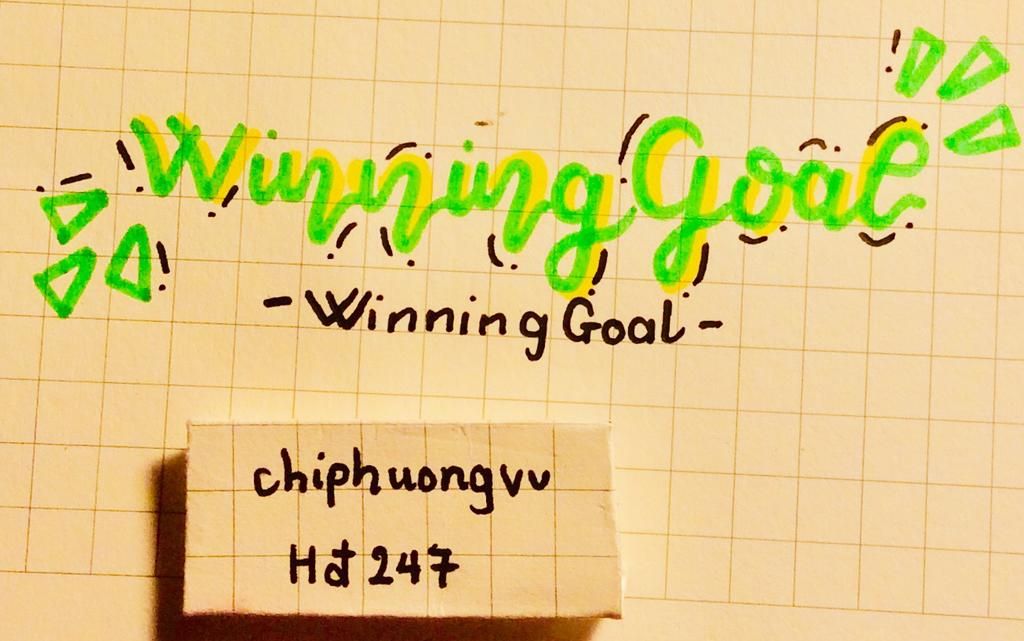 Winning Goal
- Winning Goal -
chiphuongvu
Hđ 247